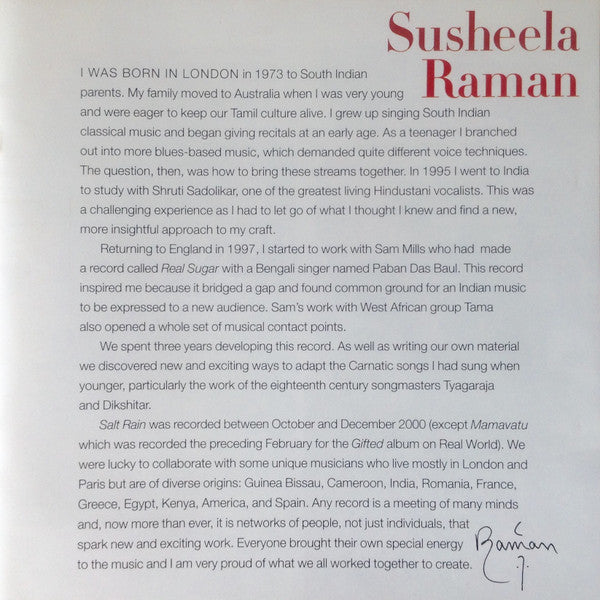 Susheela
Raman
I WAS BORN IN LONDON in 1973 to South Indian
parents. My family moved to Australia when I was very young
and were eager to keep our Tamil culture alive. I grew up singing South Indian
classical music and began giving recitals at an early age. As a teenager I branched
out into more blues-based music, which demanded quite different voice techniques.
The question, then, was how to bring these streams together. In 1995 I went to India
to study with Shruti Sadolikar, one of the greatest living Hindustani vocalists. This was
a challenging experience as I had to let go of what I thought I knew and find a new,
more insightful approach to my craft.
Returning to England in 1997, I started to work with Sam Mills who had made
a record called Real Sugar with a Bengali singer named Paban Das Baul. This record
inspired me because it bridged a gap and found common ground for an Indian music
to be expressed to a new audience. Sam's work with West African group Tama
also opened a whole set of musical contact points.
We spent three years developing this record. As well as writing our own material
we discovered new and exciting ways to adapt the Carnatic songs I had sung when
younger, particularly the work of the eighteenth century songmasters Tyagaraja
and Dikshitar.
Salt Rain was recorded between October and December 2000 (except Mamavatu
which was recorded the preceding February for the Gifted album on Real World). We
were lucky to collaborate with some unique musicians who live mostly in London and
Paris but are of diverse origins: Guinea Bissau, Cameroon, India, Romania, France,
Greece, Egypt, Kenya, America, and Spain. Any record is a meeting of many minds
and, now more than ever, it is networks of people, not just individuals, that
spark new and exciting work. Everyone brought their own special energy
to the music and I am very proud of what we all worked together to create.
Raman